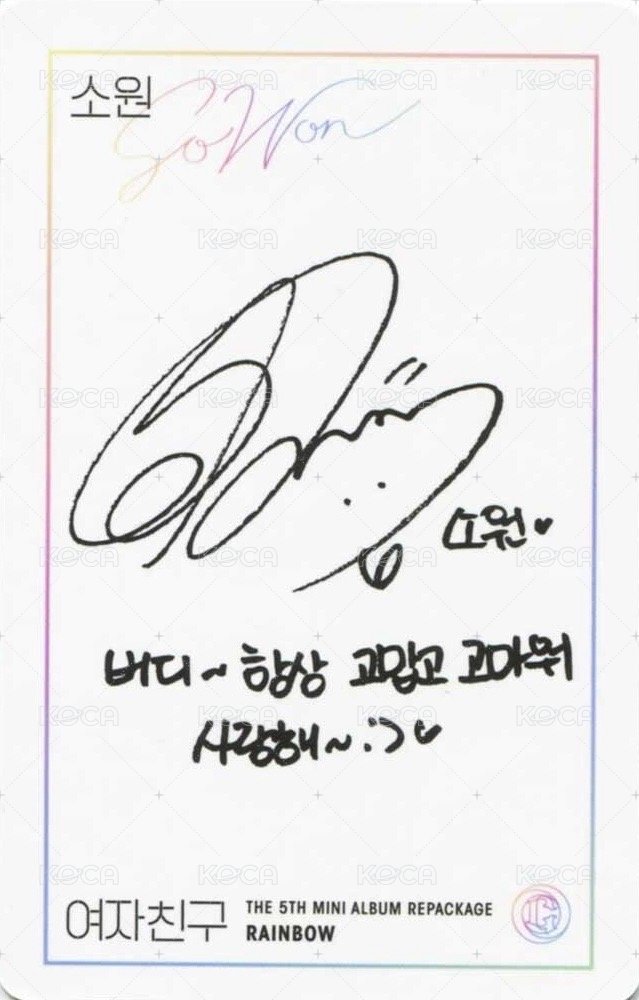 소원 SoWon
소원♥
버디~ 항상 고맙고 고마워
사랑해~ :) ♥
여자친구 THE 5TH MINI ALBUM REPACKAGE
RAINBOW
KOCA